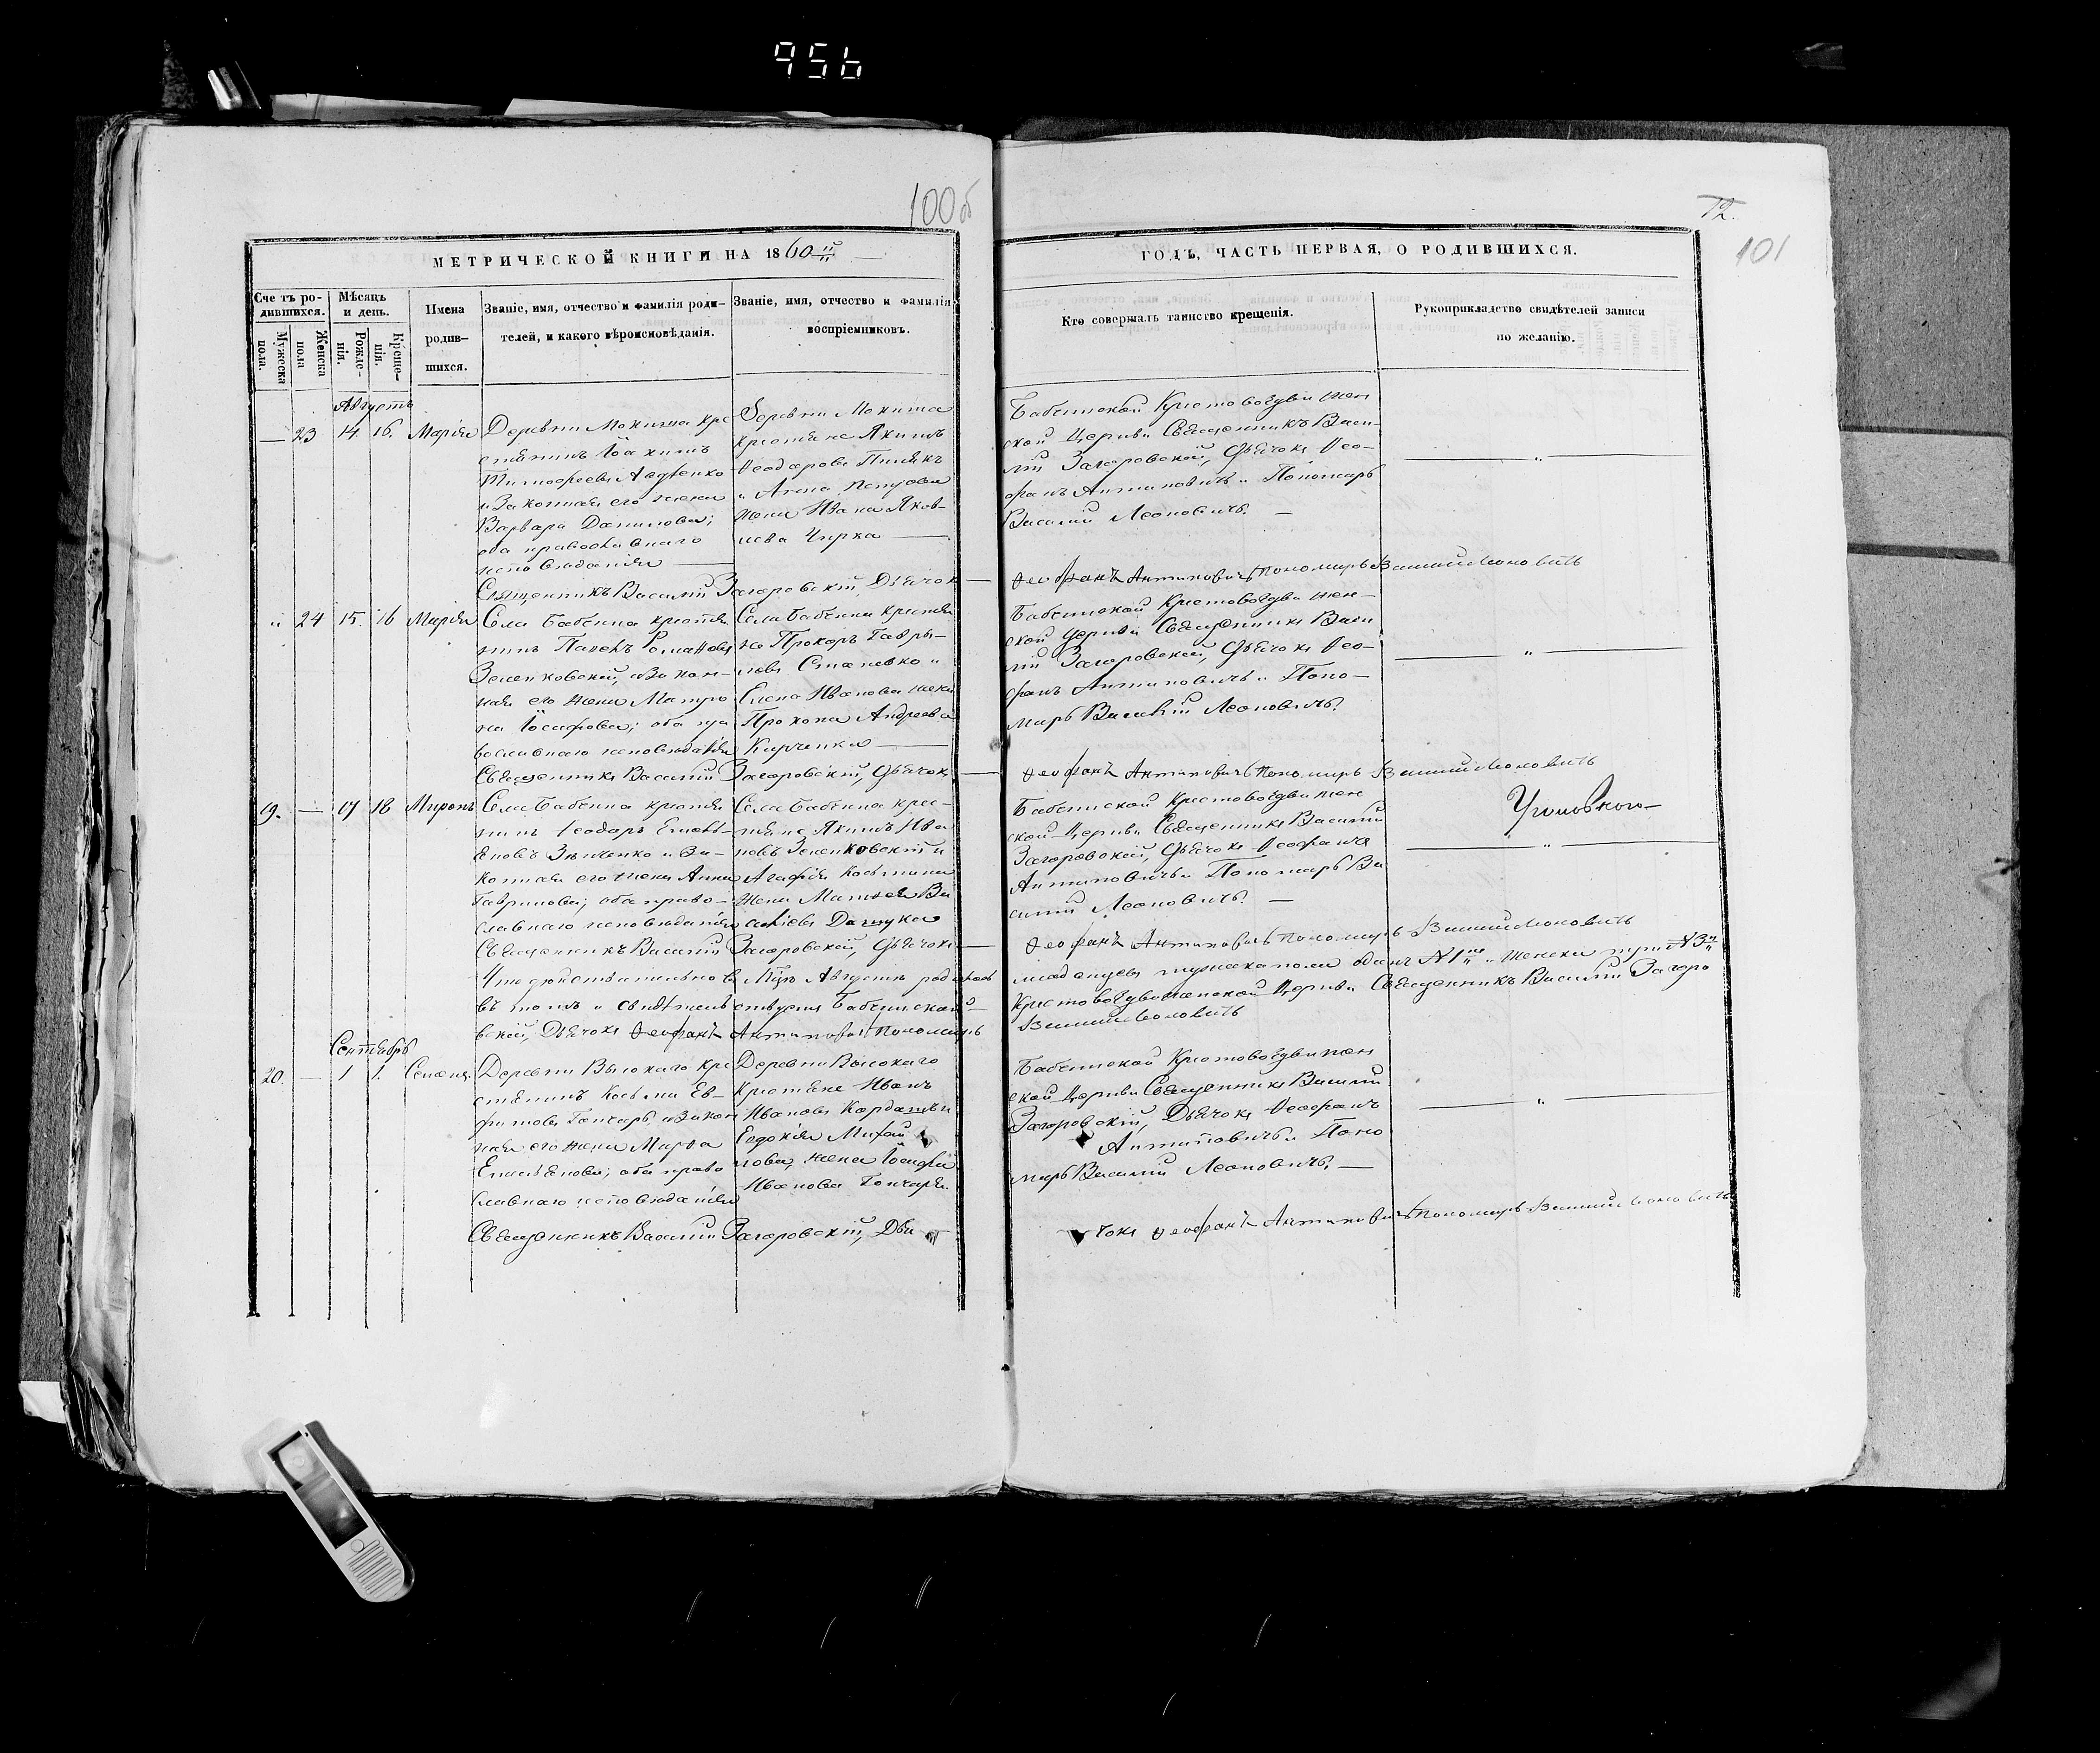 956
100об
72.
101
МЕТРИЧЕСКОЙ КНИГИ НА 1860
ГОДЪ, ЧАСТЬ ПЕРВАЯ, О РОДИВШИХСЯ.
Счетъ родившихся.
Мужеска пола.
Женска пола
Мѣсяцъ и день.
Рожденія.
Крещенія.
Имена родившихся.
Званіе, имя, отчество и фамилія родителей, и какого вѣроисповѣданія.
Званіе, имя, отчество и фамилія воспріемниковъ.
Кто совершалъ таинство крещенія.
Рукоприкладство свидѣтелей записи по желанію.
Августъ
— 23 14. 16. Марія
Деревни Мокиша кре
стянинъ Іоакимъ
Тимофеевъ Авдѣенко
и Законная его жена
Варвара Данилова;
оба православнаго
исповѣданія —
Деревни Мокиша
крестяне Якимъ
Ѳеодоровъ
и Анна Петрова
жена Ивана Яков-
лева Чирка —
Бабчинской Крестовоздвижен
ской Церкви Священникъ Васи-
лій Загоровскій, Дьячокъ Ѳео-
фанъ Антиповичъ и Пономарь
Василій Леоновичъ. —
Священникъ Василій Загоровскій, Дьячокъ — Ѳеофанъ Антиповичъ Пономарь Василий Леоновичъ
" 24 15. 16 Марія
Села Бабчина крестя
нинъ Павелъ Романовъ
Зеленковскій, и Закон-
ная его жена Матро
на Іосифова; оба пра
вославнаго исповѣданія
Села Бабчина крестя
не Прохоръ Гаври-
ловъ и
Елена Иванова жена
Прокопа Андреева
Карченка —
Бабчинской Крестовоздвижен-
ской Церкви Священникъ Васи
лій Загоровскій, Дьячокъ Ѳео-
фанъ Антиповичъ и Поно-
марь Василій Леоновичъ.
Священникъ Василій Загоровскій, Дьячокъ — Ѳеофанъ Антиповичъ Пономарь Василий Леоновичъ
19. — 17 18 Миронъ
Села Бабчина крестя
нинъ Ѳеодоръ Емель-
яновъ Зинченко и За-
конная его жена Анна
Гаврилова; оба право-
славнаго исповѣданія
Села Бабчина крес-
тяне Якимъ Ива
новъ Зеленковскій и
Агафія Косьмина
жена Матвея Ва
силіева
Бабчинской Крестовоздвижен
ской Церкви Священникъ Василій
Загоровскій, Дьячокъ Ѳеофанъ
Антиповичъ и Пономарь Ва
силій Леоновичъ. —
Священникъ Василій Загоровскій, Дьячокъ — Ѳеофанъ Антиповичъ Пономарь Василий Леоновичъ
Что дѣйствительно въ Мцѣ Августѣ родилось младенцевъ мужска пола одинъ №1 и женска три №3
въ томъ и свидѣтельствуемъ Бабчинской Крестовоздвиженской Церкви Священникъ Василій Загоро
вскій, Дьячокъ Ѳеофанъ Антиповичъ Пономарь Василий Леоновичъ
Сентябрь
20. — 1 1.
Деревни Высокаго кре
стянинъ Косьма Ев-
фимовъ Гончаръ и Закон
ная его жена Марѳа
Емельянова; оба право
славнаго исповѣданія
Деревни Высокаго
Крестяне Иванъ
Ивановъ и
Евдокія Михай
лова, жена Іосифа
Иванова Гончара.
Бабчинской Крестовоздвижен
ской Церкви Священникъ Василій
Загоровскій, Дьячокъ Ѳеофанъ
Антиповичъ и Поно
марь Василій Леоновичъ. —
Священникъ Василій Загоровскій, Дья чокъ Ѳеофанъ Антиповичъ Пономарь Василий Леоновичъ